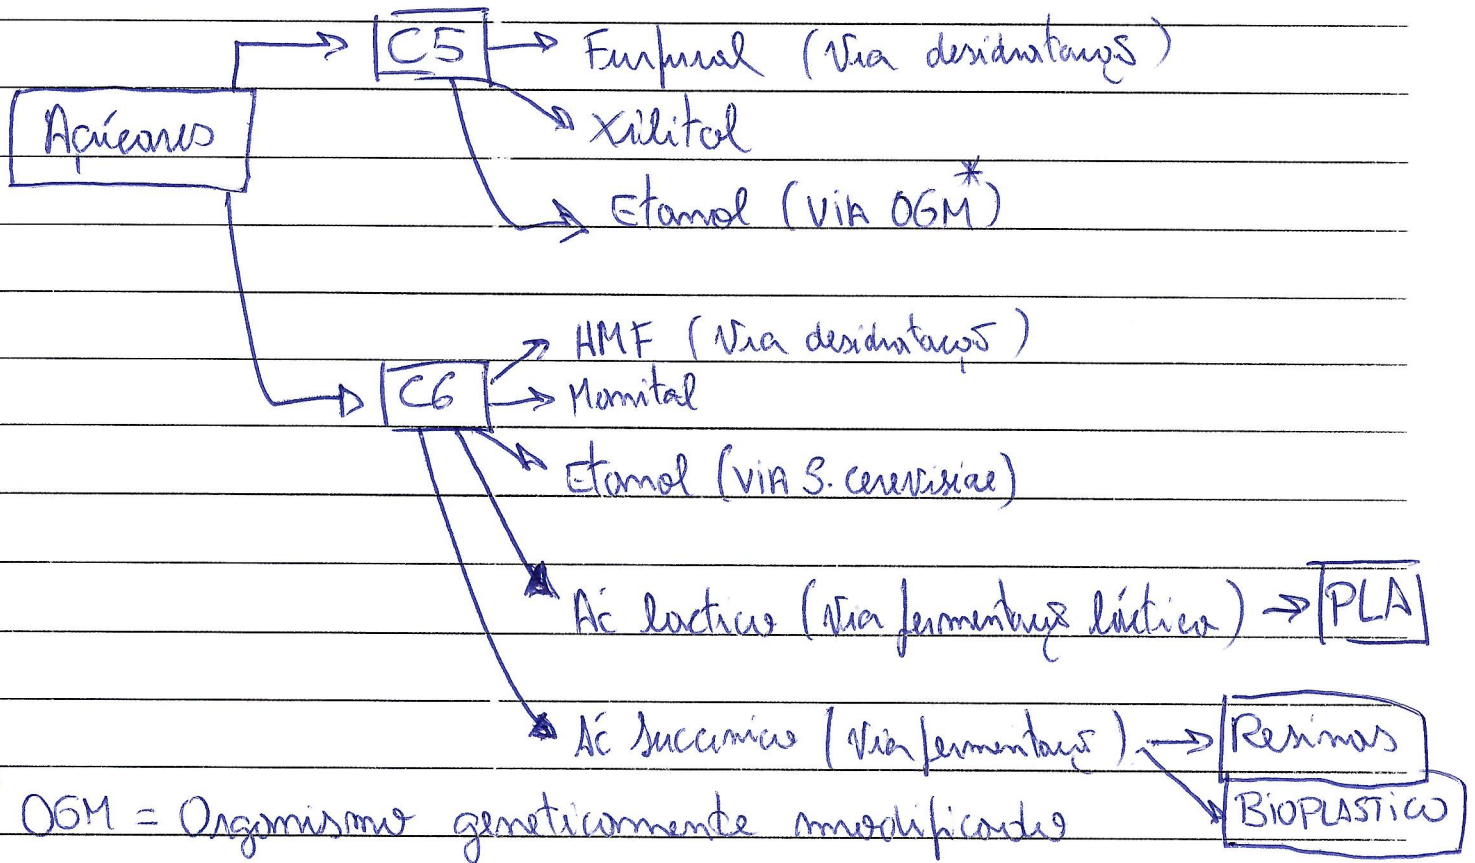 C5 → Furfural (Via desidratação)
Açúcares
Xilitol
Etanol (VIA OGM*)
HMF (Via desidratação)
C6 → Manital
Etanol (VIA S. cerevisiae)
Ác lactico (Via fermentação láctica) → PLA
Ác Succinico (Via fermentação) → Resinas
BIOPLASTICO
OGM = Organismo geneticamente modificado